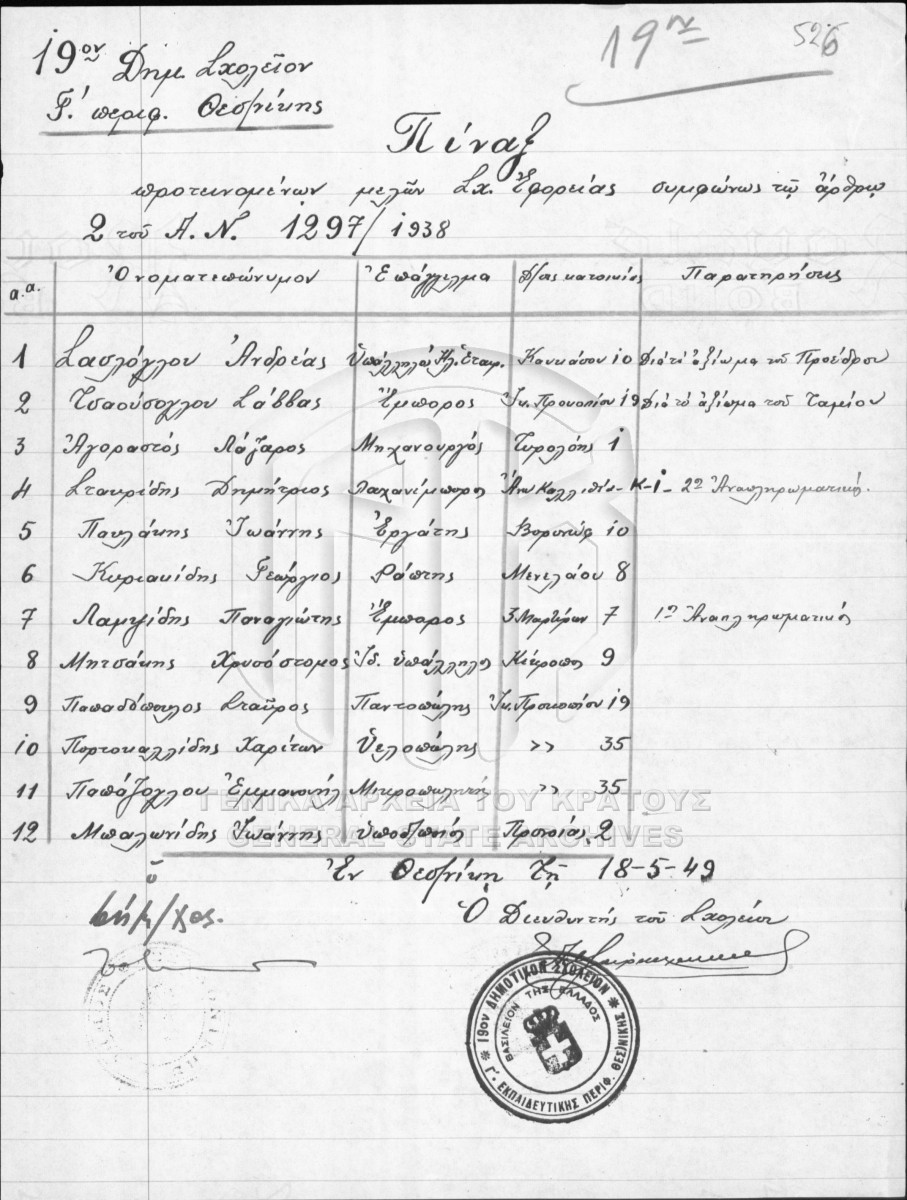 19ον Δημ. Σχολεῖον
19ης
526
Γ΄. περιφ. Θεσ/νίκης
Πίναξ
προτεινομένων μελῶν Σχ. Ἐφορείας συμφώνως τῷ ἄρθρῳ
2 τοῦ Α.Ν. 1297/1938
α.α. Ὀνοματεπώνυμον Ἐπάγγελμα Δ/σις κατοικίας Παρατηρήσεις
1 Σασλόγλου Ἀνδρέας Ὑπάλληλος Ἠλ. Ἑταιρ. Καυκάσου 10 Διὰ τὸ ἀξίωμα τοῦ Προέδρου
2 Τσαούσογλου Σάββας Ἔμπορος Ἰω. Προκοπίου 19 Διὰ τὸ ἀξίωμα τοῦ Ταμίου
3 Ἀγοραστός Λάζαρος Μηχανουργός Τυρολόης 1
4 Σταυρίδης Δημήτριος Λαχανέμπορος Ἄνω Καλλιθέα Κ-1- 2ος Ἀναπληρωματικός.
5 Παυλάκης Ἰωάννης Ἐργάτης Βορονώφ 10
6 Κυριακίδης Γεώργιος Ράπτης Μενελάου 8
7 Λαμψίδης Παναγιώτης Ἔμπορος 3 Μαρτύρων 7 1ος Ἀναπληρωματικός
8 Μητσάκης Χρυσόστομος Ἰδ. ὑπάλληλος Κέκροπος 9
9 Παπαδόπουλος Σταῦρος Παντοπώλης Ἰω. Προκοπίου 19
10 Πορτοκαλλίδης Χαρίτων Ὑελοπώλης >> 35
11 Παπάζογλου Ἐμμανουήλ Μικροπωλητής >> 35
12 Μπαλωνίδης Ἰωάννης Ὑποδ/ποιός Προποντίδος 2
Ἐν Θεσ/νίκῃ τῇ 18-5-49
Ὁ Διευθυντής τοῦ Σχολείου
19ον ΔΗΜΟΤΙΚΟΝ ΣΧΟΛΕΙΟΝ
Γ΄. ΕΚΠΑΙΔΕΥΤΙΚΗΣ ΠΕΡΙΦ. ΘΕΣ)ΝΙΚΗΣ
ΒΑΣΙΛΕΙΟΝ ΤΗΣ ΕΛΛΑΔΟΣ
ΓΕΝΙΚΑ ΑΡΧΕΙΑ ΤΟΥ ΚΡΑΤΟΥΣ
GENERAL STATE ARCHIVES